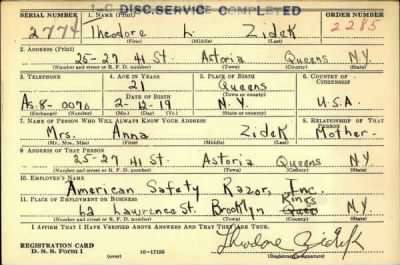 I-C DISC. SERVICE COMPLETED
SERIAL NUMBER 1. NAME (Print) ORDER NUMBER
2774 Theodore L. Zidek 2285
(First) (Middle) (Last)
2. ADDRESS (Print)
25-27 41 St. Astoria Queens N.Y.
(Number and street or R. F. D. number) (Town) (County) (State)
3. TELEPHONE 4. AGE IN YEARS 5. PLACE OF BIRTH 6. COUNTRY OF
21 Queens CITIZENSHIP
DATE OF BIRTH (Town or county)
As. 8-0070 2-12-19 N.Y. U.S.A.
(Exchange) (Number) (Mo.) (Day) (Yr.) (State or country)
7. NAME OF PERSON WHO WILL ALWAYS KNOW YOUR ADDRESS 8. RELATIONSHIP OF THAT PERSON
Mrs. Anna Zidek Mother
(Mr., Mrs., Miss) (First) (Middle) (Last)
9. ADDRESS OF THAT PERSON
25-27 41 St. Astoria Queens N.Y.
(Number and street or R. F. D. number) (Town) (County) (State)
10. EMPLOYER'S NAME
American Safety Razor, Inc.
11. PLACE OF EMPLOYMENT OR BUSINESS Kings
62 Laurence St. Brooklyn Queen N.Y.
(Number and street or R. F. D. number) (Town) (County) (State)
I AFFIRM THAT I HAVE VERIFIED ABOVE ANSWERS AND THAT THEY ARE TRUE.
REGISTRATION CARD Theodore Zidek
D. S. S. Form 1 (over) 16-17105 (Registrant's signature)